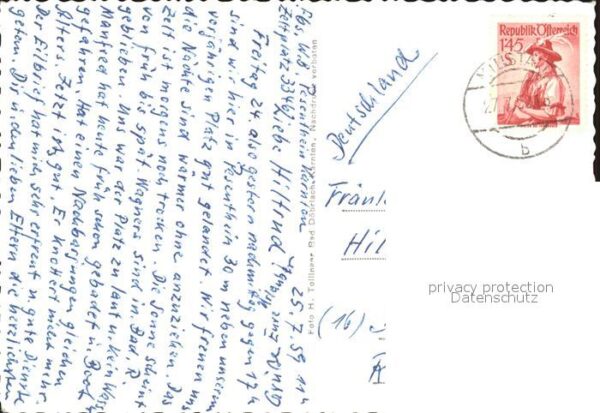 Abs. Wld. Pesenthein Kärnten
Zeltplatz 334 25.7.59 11 h
Liebe Hiltrud
Freitag 24 also gestern nachmittag gegen 17 h
sind wir hier in Pesenthein 30 m neben unserem
vorjährigen Platz gut gelandet. Wir freuen uns
die Nächte sind wärmer ohne anzuziehen. Das
Zelt ist morgens noch trocken. Die Sonne scheint
von früh bis spät. Wagners sind in Bad R.
geblieben. Uns war der Platz zu laut u. kein Wasser
Manfred hat heute früh schon gebadet u. Boot
gefahren. Hat einen Nachbarjungen gleichen
Alters. Jetzt ists gut. Er knottert nicht mehr.
Der Eilbrief hat mich sehr erfreut u. gute Dienste
getan. Dir u. den lieben Eltern die herzlichsten
Foto H. Tollinger Bad Döbriach-Kärnten, Nachdruck verboten
Republik Österreich
1'45
b
Deutschland
Fränl
Hil
(16)
privacy protection
Datenschutz